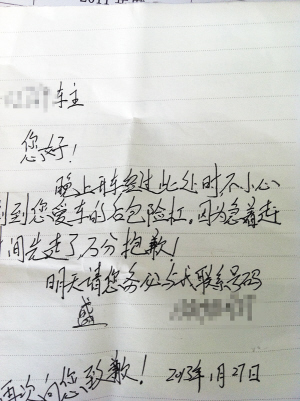 车主
您好!
晚上开车经过此处时不小心
到您爱车的后包险杠。因为急着赶
间先走了,万分抱歉!
明天请您务必与我联系号码
盛
再次向您致歉! 2013年1月27日